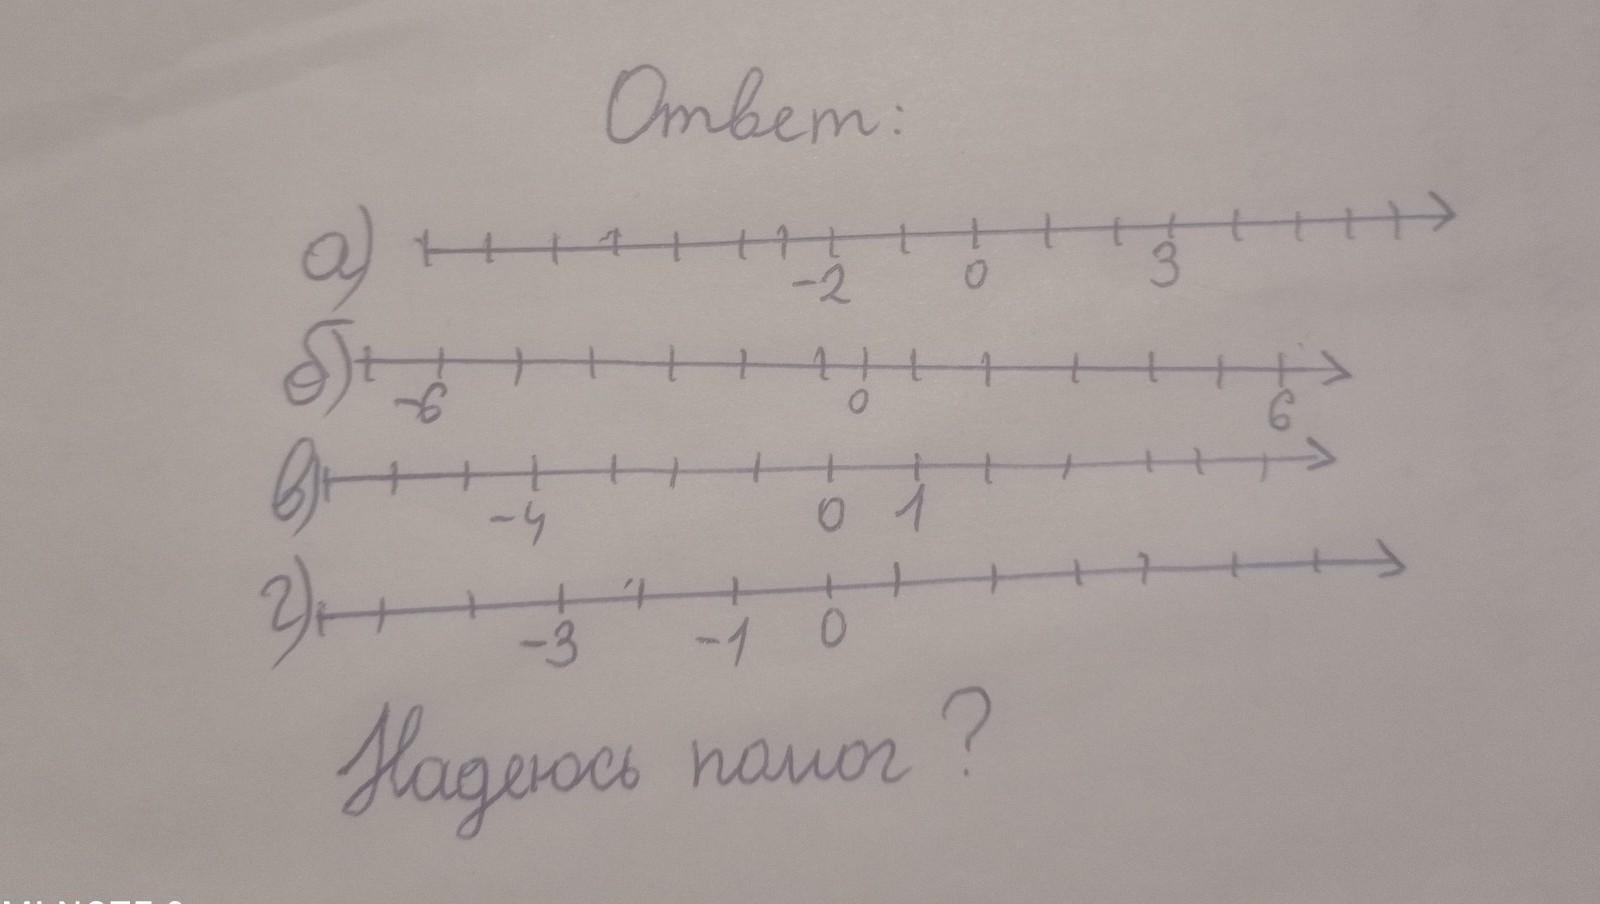 Ответ:
а) -2 0 3
б) -6 0 6
в) -4 0 1
г) -3 -1 0
Надеюсь помог?